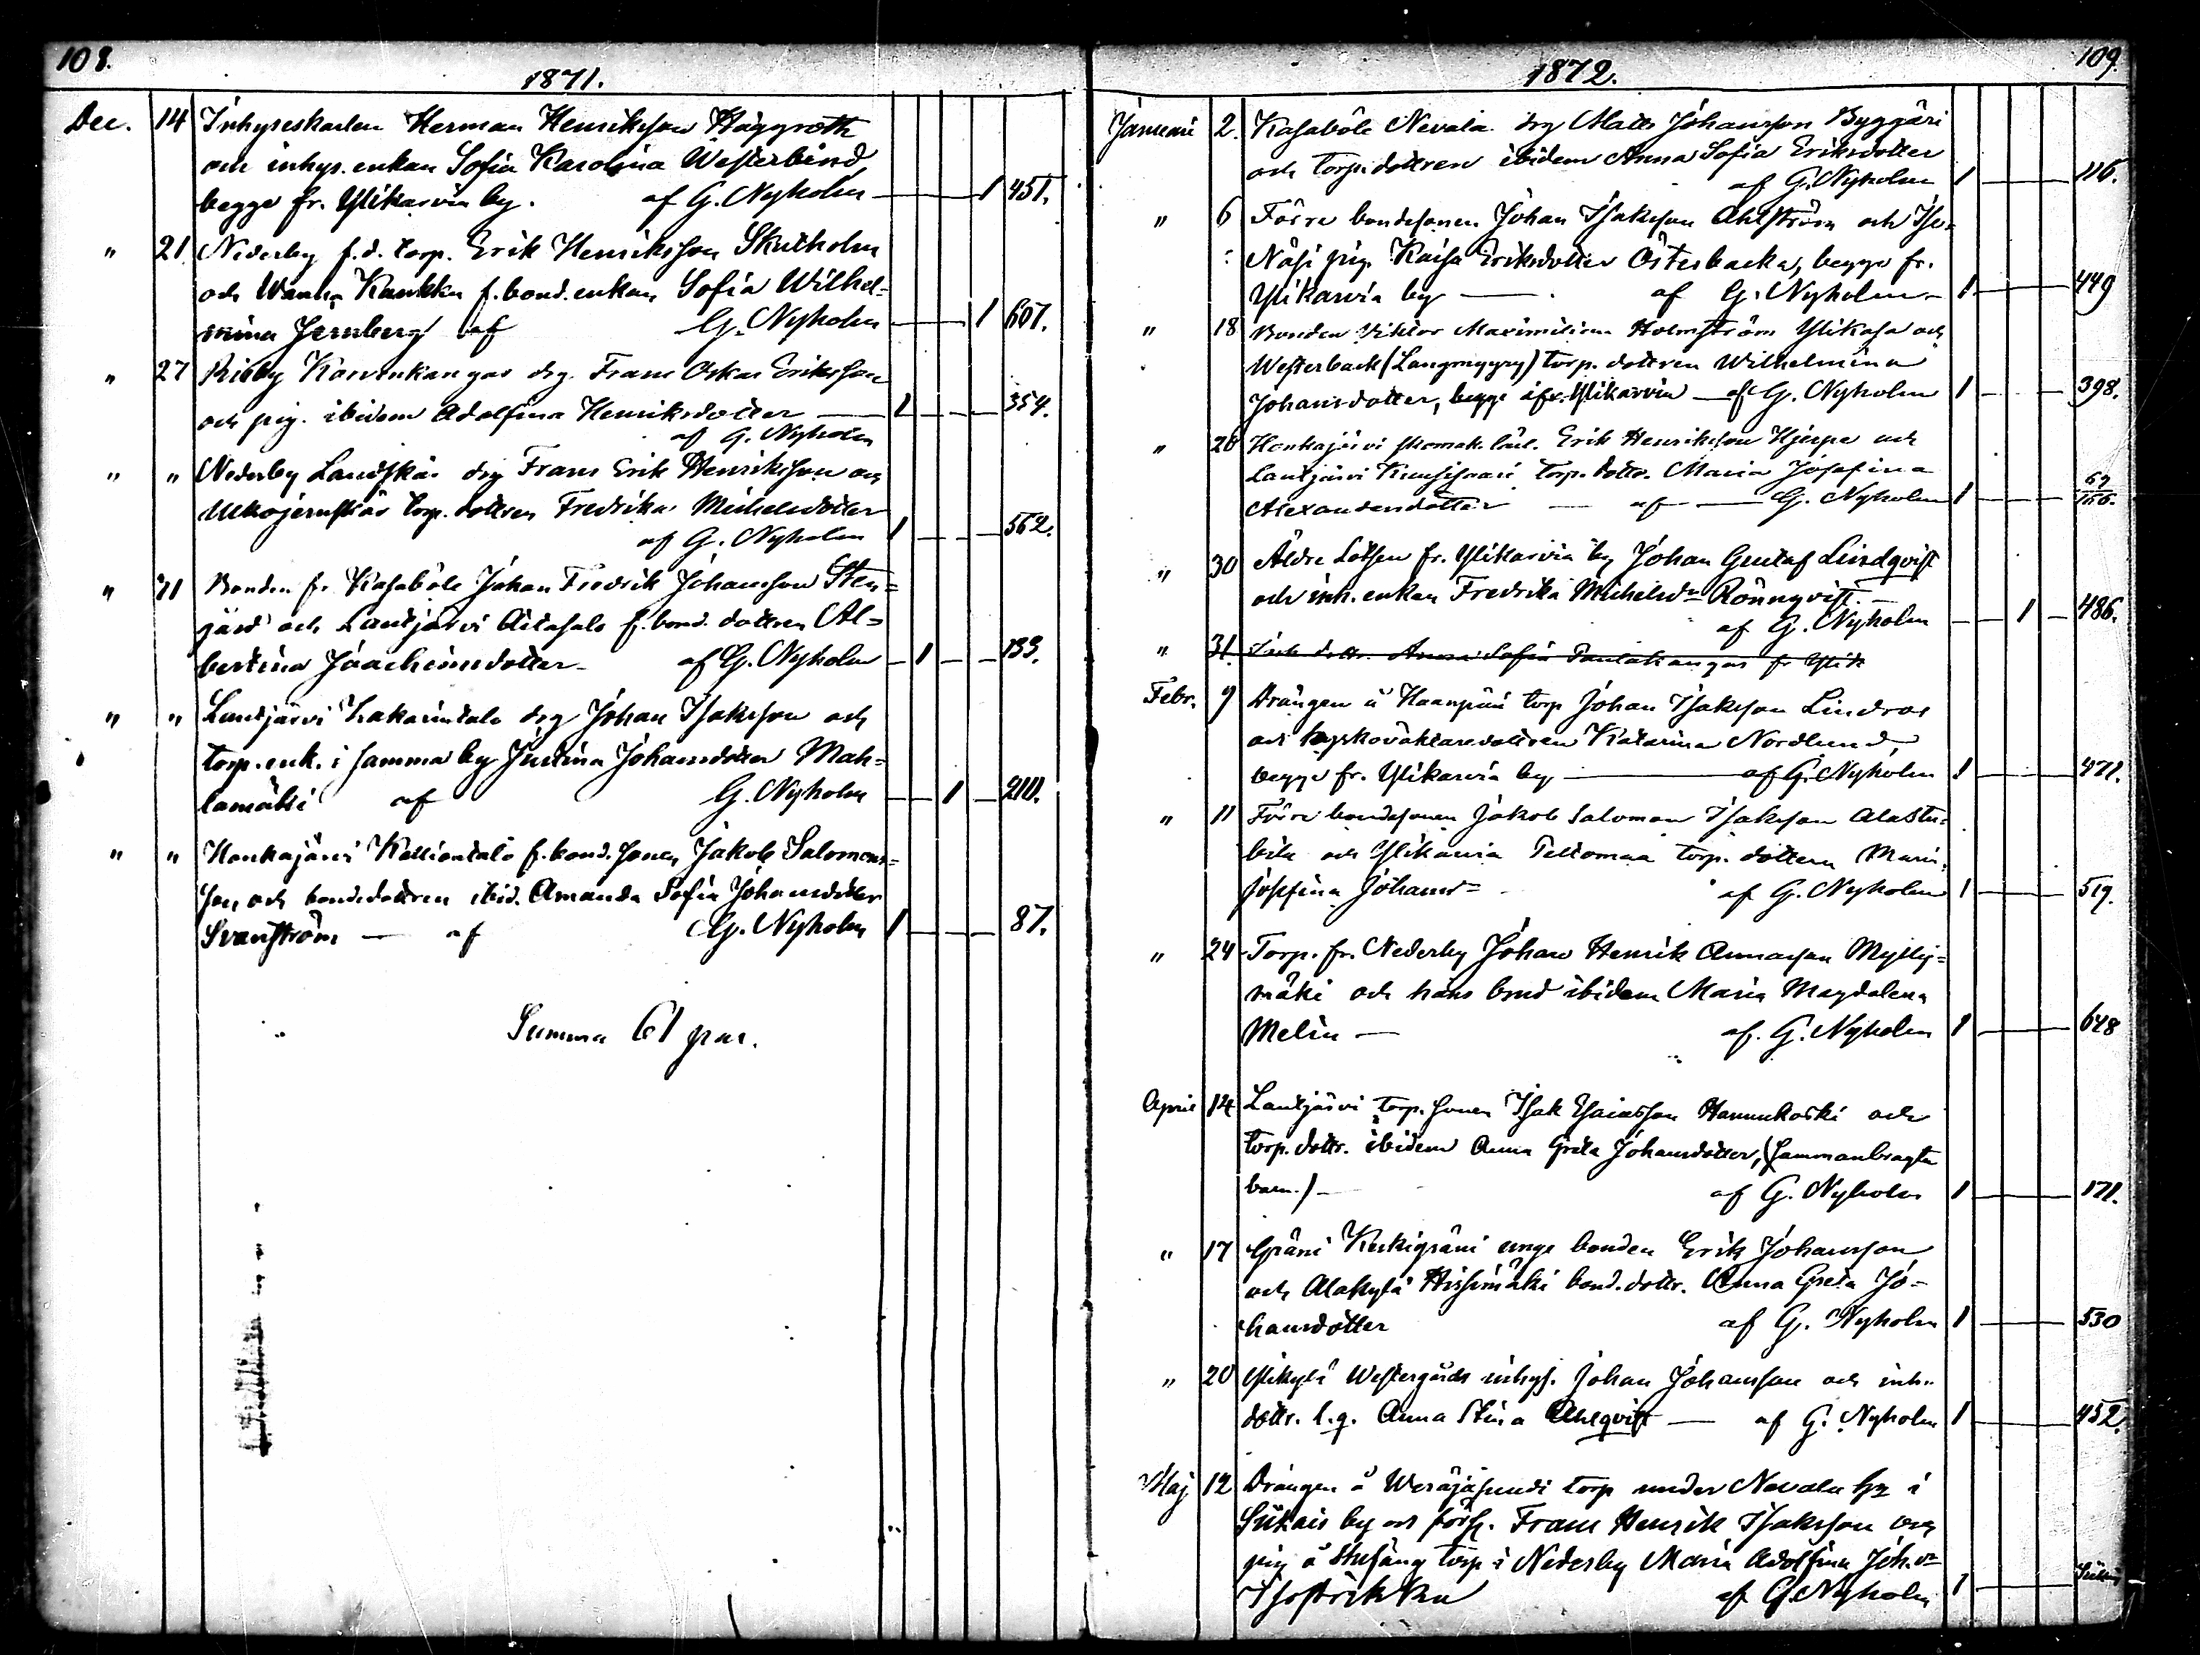 108.
1871.
Dec. 14 Inhyseskarlen Herman Henriksson Häggroth
och inhys. enkan Sofia Karolina Westerlund
begge fr. Ylikarvia by. af G. Nyholm 1 451.
" 21 Nederby f.d. torp. Erik Henriksson Skutholm
och Wanha Kankku f. bond. enkan Sofia Wilhel=
mina Jernberg af G. Nyholm 1 607.
" 27 Kasvenkangas drg. Frans Oskar Eriksson
och pig. ibidem Adolfina Henriksdotter 1 354.
af G. Nyholm
" " Nederby Landskär drg Frans Erik Henriksson och
torp. dottren Fredrika Michelsdotter
af G. Nyholm 1 562.
" 31 Bonden fr. Kasaböle Johan Fredrik Johansson Sten=
gård och Lankjärvi f. bond. dottren Al=
bertina Joachimsdotter af G. Nyholm 1 133.
" " Lankjärvi drg Johan Isaksson och
torp. enk. i samma by Justina Johansdotter Mah=
lamäki af G. Nyholm 1 210.
" " Honkajärvi Kalliontalo f. bond. sonen Jakob Salomons=
son och bondedottren ibid. Amanda Sofia Johansdotter
Svanström af G. Nyholm 1 87.
Summa 61 par.
109.
1872.
Januari 2. Kasaböle Nevala drg Matts Johansson Byggäri
och torp. dottren ibidem Anna Sofia Eriksdotter
af G. Nyholm 1 116.
" 6 Förre bondesonen Johan Isaksson Ahlström och Iso=
Näsi pig. Kaisa Eriksdotter Österbacka, begge fr.
Ylikarvia by af G. Nyholm 1 449
" 18 Bonden Viktor Maximilian Holmström Ylikasa och
Westerback (Langmyyry) torp. dottren Wilhelmina
Johansdotter, begge ifr. Ylikarvia af G. Nyholm 1 398.
" 28 Honkajärvi skomak. lärl. Erik Henriksson Hjerpe och
Lankjärvi Kuusisaari torp. dottr. Maria Josefina
Alexandersdotter af G. Nyholm 1 67
156.
" 30 Äldre Lotsen fr. Ylikarvia by Johan Gustaf Lindqvist
och inh. enkan Fredrika Michelsdr Rönnqvist
af G. Nyholm 1 486.
" 31. Inh. dottr. Anna Sofia Pantakangas fr Ylik
Febr. 9 Drängen å Haanpää torp Johan Isaksson Lindros
och Katarina Nordlund,
begge fr. Ylikarvia by af G. Nyholm 1 471.
" 11 Förre bondesonen Jakob Salomon Isaksson Alastu=
bila och Ylikarvia Peltomaa torp. dottern Maria
Josefina Johansdr af G. Nyholm 1 519.
" 24 Torp. fr. Nederby Johan Henrik Annasson Mylly=
mäki och hans brud ibidem Maria Magdalena
Melin af G. Nyholm 1 648
April 14 Lankjärvi torp. sonen Isak Esaiasson Hannukoski och
torp. dottr. ibidem Anna Greta Johansdotter, (sammanbragta
barn.) af G. Nyholm 1 171.
" 17 Gräni Keskigräni unge bonden Erik Johansson
och Alakylä Hissimäki bond. dottr. Anna Greta Jo=
hansdotter af G. Nyholm 1 530
" 20 Ylikylä Westergårds inhys. Johan Johansson och inh.
dottr. l.q. Anna Stina Ahlqvist af G. Nyholm 1 452.
Maj 12 Drängen å torp under Nevala i
by och förs. Frans Henrik Isaksson och
pig å torp i Nederby Maria Adolfina Joh.dr
af G. Nyholm 1